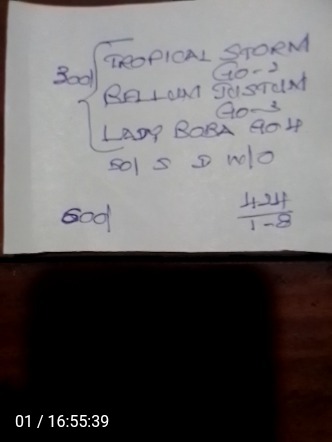 300/ TROPICAL STORM
GO-2
BELLUM JUSTUM
GO-3
LADY BOBA GO 4
50/ S D W/O
600/ 424
1-8
01 / 16:55:39